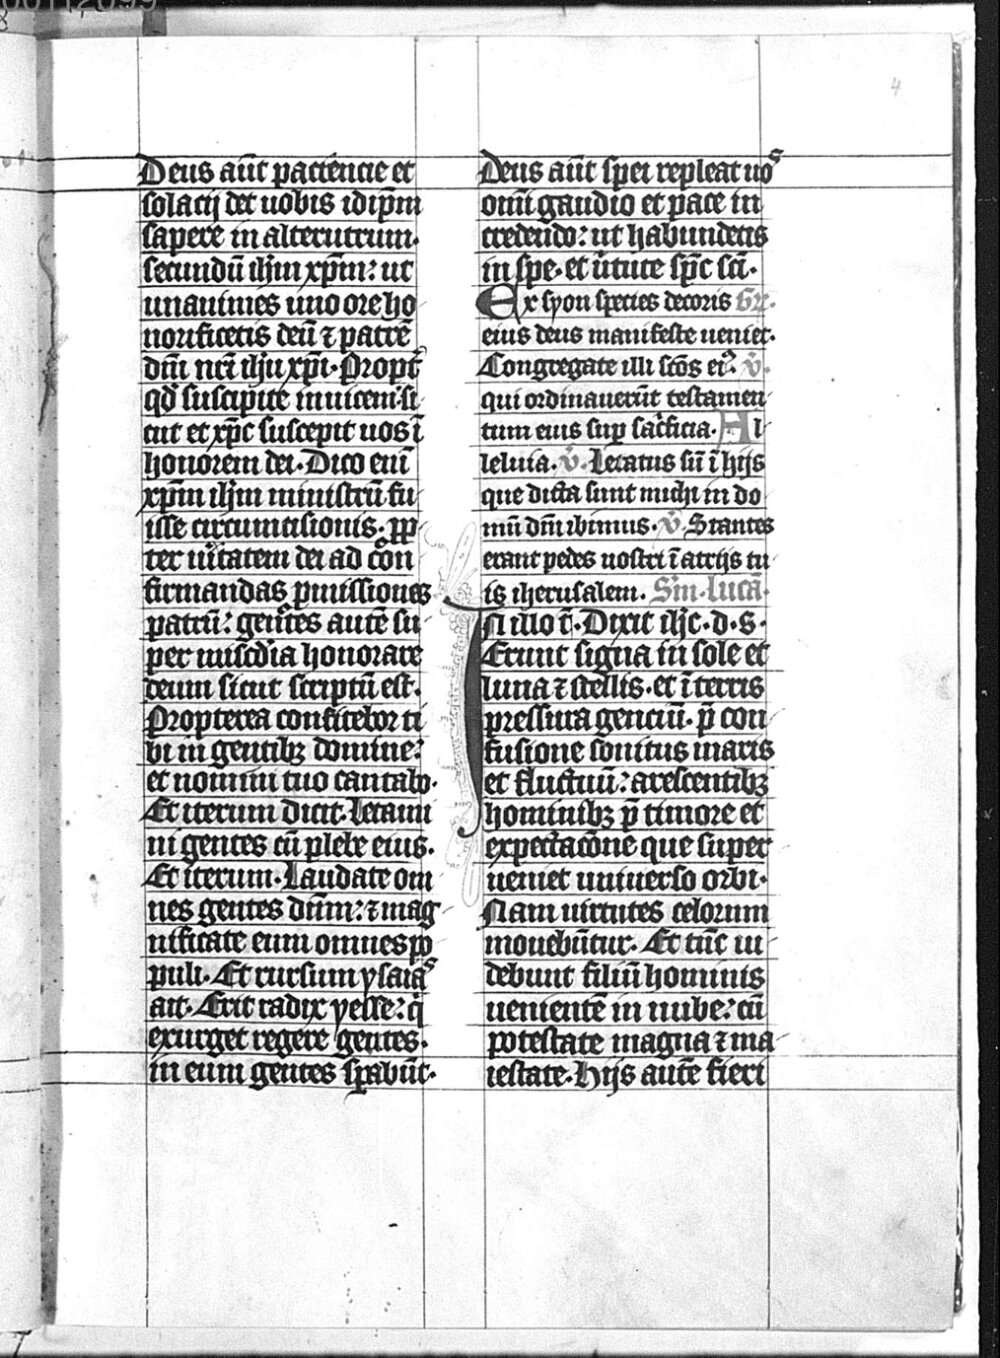 4
Deus aūt paciencie et
solacij det uobis idip̄m
sapere in alterutrum·
secundū ihm̄ xp̄m: ut
unanimes uno ore ho
norificetis deū ⁊ patrē
dn̄i nr̄i ihu xp̄i· Propt̄
qd̓ suscipite inuicem· si
cut et xp̄c suscepit uos ī
honorem dei· Dico enī
xp̄m ihm̄ ministrū fu
isse circumcisionis· ꝓp
ter ūitatem dei ad cōn
firmandas ꝓmissiones
patrū: gentes autē su
per mīscdīa honorare
deum sicut scriptū est·
Propterea confitebor ti
bi in gentibꝫ domine:
et nomini tuo cantabo·
Et iterum dicit· Letami
ni gentes cū plebe eius·
Et iterum· Laudate om
nes gentes dn̄m: ⁊ mag
nificate eum omnes po
puli· Et rursum ysaias
ait· Erit radix yesse: q̄
exurget regere gentes·
in eum gentes sꝑabūt·
Deus aūt spei repleat uos
omī gaudio et pace in
credendo: ut habundetis
in spe· et ūtute sp̄c sc̄i·
Ex syon species decoris Gr̄·
eius deus manifeste ueniet·
Congregate illi sc̄os eiꝰ v̄·
qui ordinauerūt testamen
tum eius suꝑ sac̄ficia· Al
leluia· v̄· Letatus sū ī hijs
que dicta sunt michi in do
mū dn̄i ibimus· v̄· Stantes
erant pedes nostri ī atrijs tu
is iherusalem· Sm̄· lucā·
In illo t̄· Dixit ihc̄· d· s·
Erunt signa in sole et
luna ⁊ stellis· et ī terris
pressura genciū· p̄ con
fusione sonitus maris
et fluctuū: arescentibꝫ
hominibꝫ p̄ timore et
expectac̄one que super
ueniet uniuerso orbi·
Nam uirtutes celorum
mouebūtur· Et tūc ui
debunt filiū hominis
uenientē in nube: cū
potestate magna ⁊ ma
iestate· Hijs autē fieri